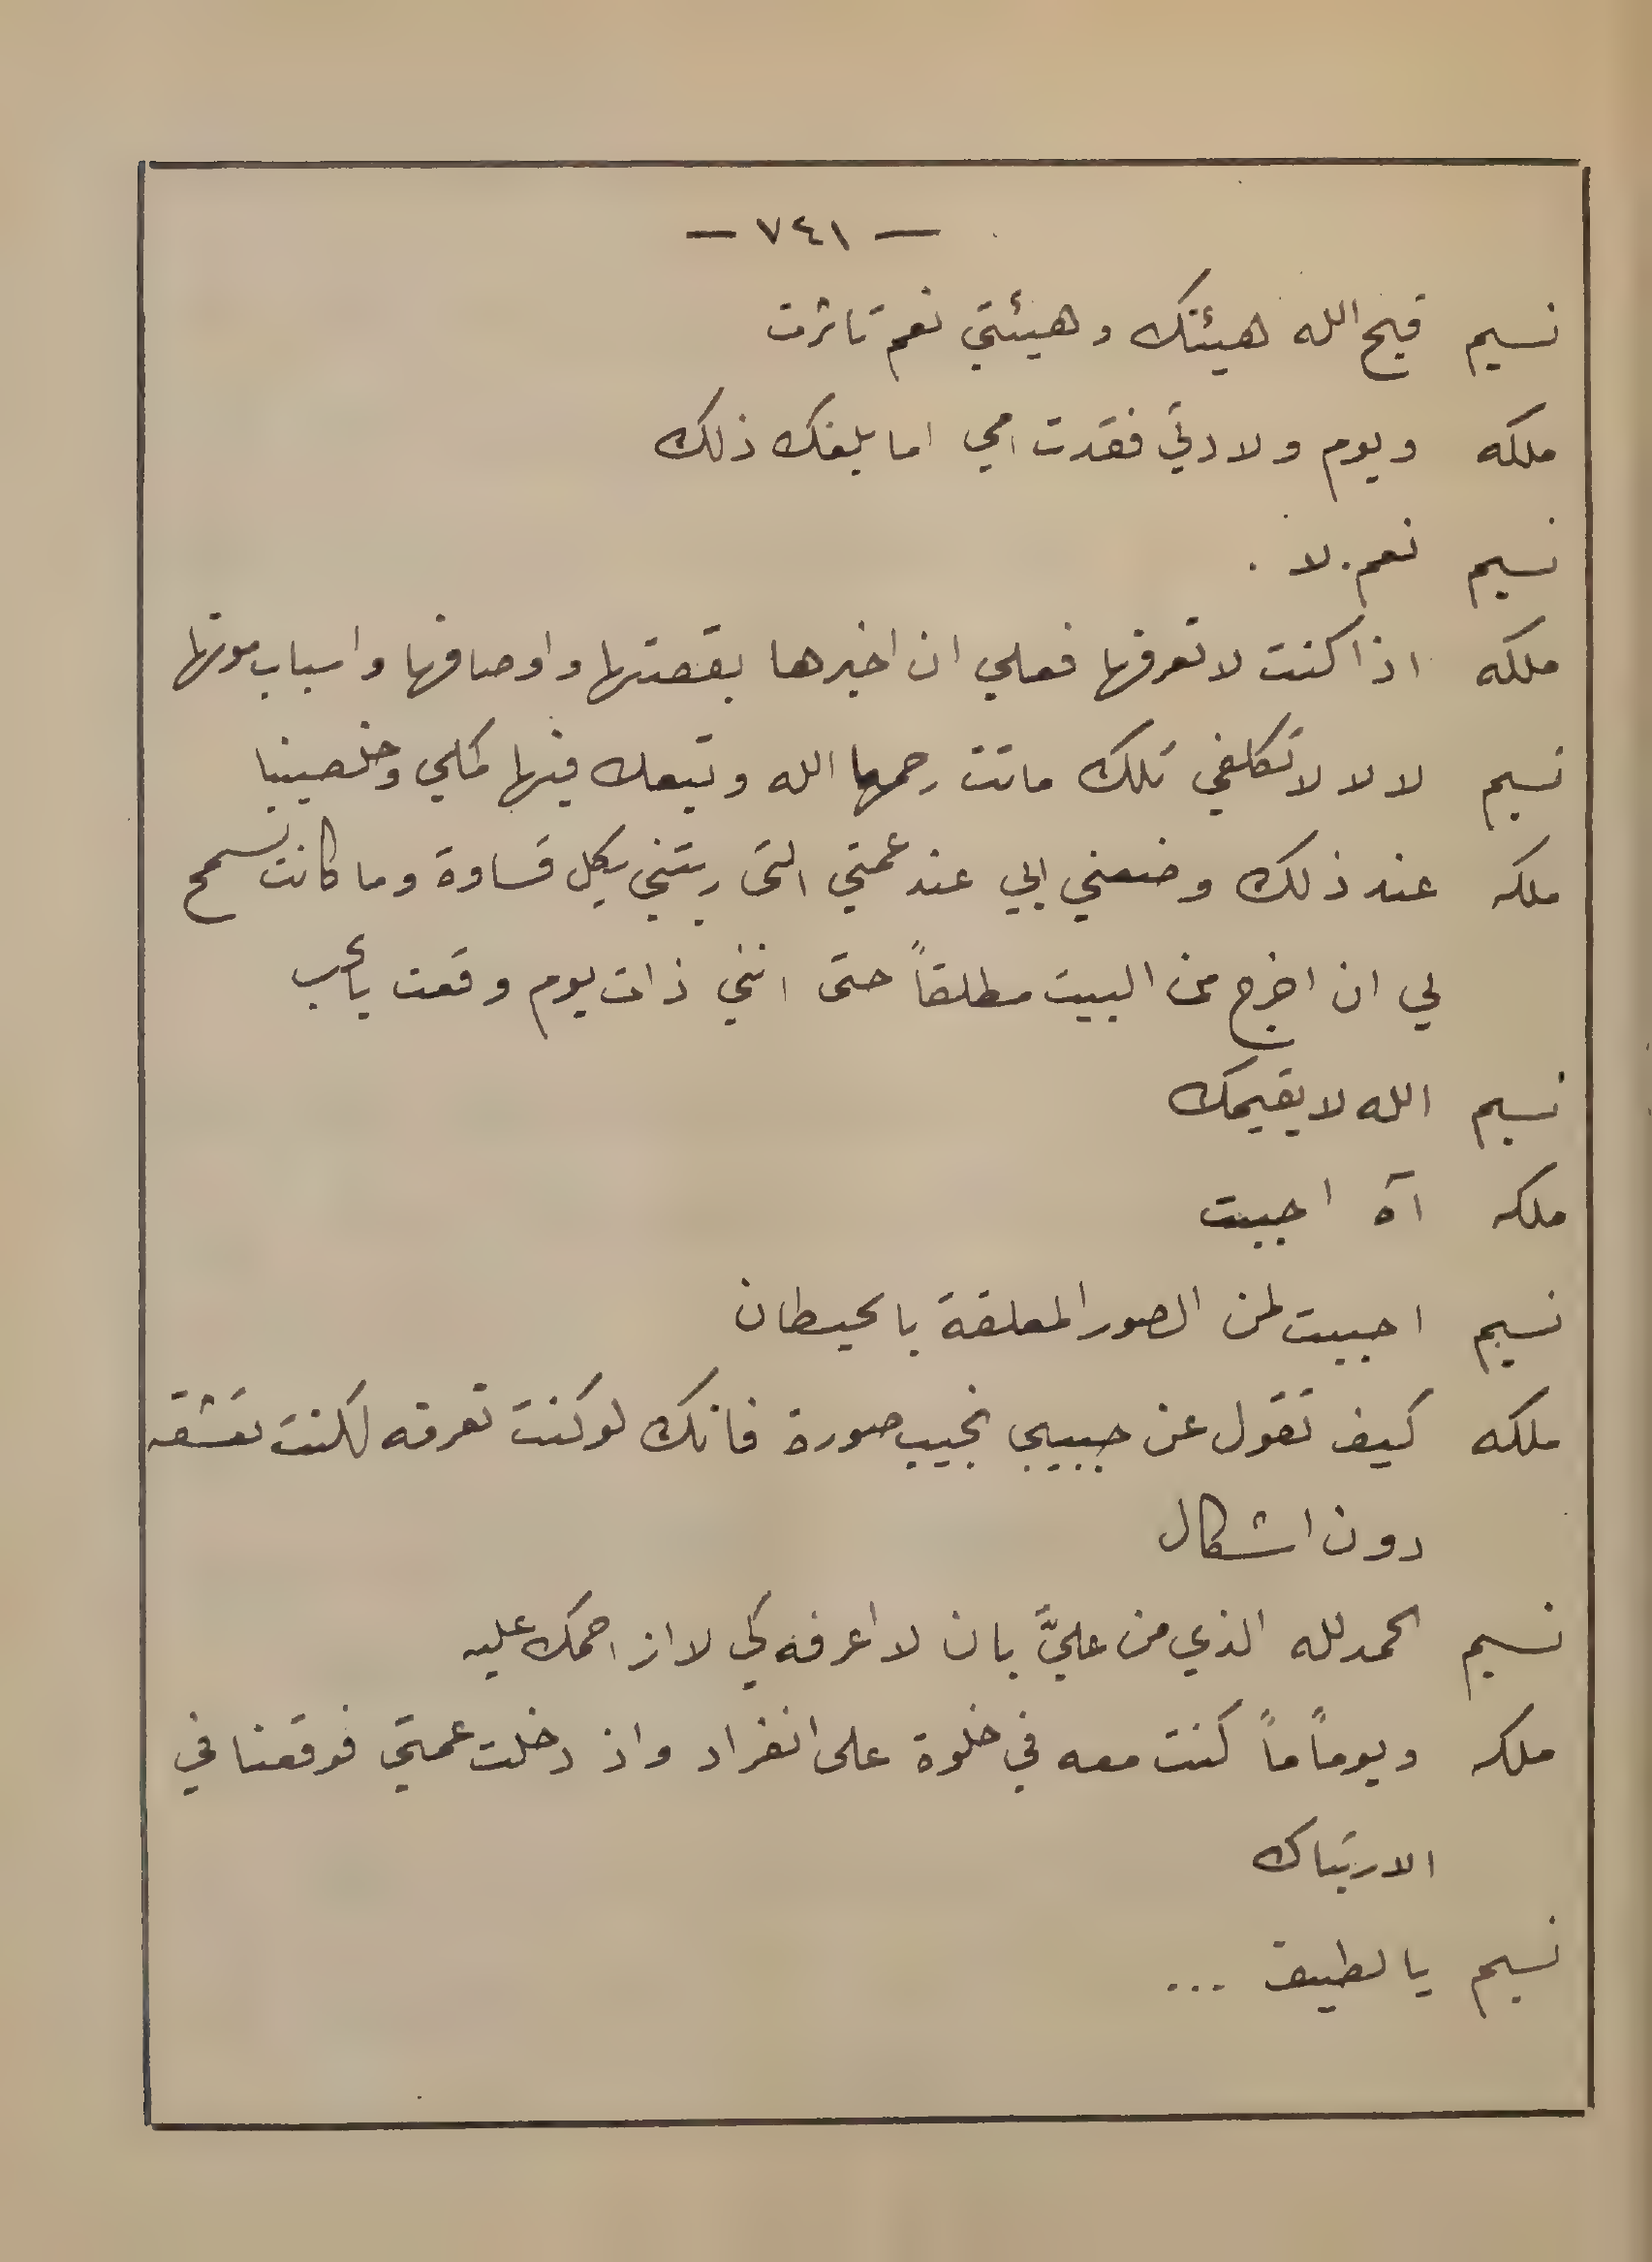 — ٧٤١ —
نسيم قبح الله هيئتك وهيئتي نعم تاثرت
ملكه ويوم ولادتي فقدت امي اما بلغك ذلك
نسيم نعم . لا .
ملكه اذا كنت لا تعرفها فعلي ان اخبرها بقصتها واوصافها واسباب موتها
نسيم لا لا لا تكلفي تلك ماتت رحمها الله وتبعك فيها كملي وخلصينا
ملكه عند ذلك وضعني ابي عند عمتي التى ربتني بكل قساوة وما كانت تسمح
لي ان اخرج من البيت مطلقاً حتى انني ذات يوم وقعت بالحب
نسيم الله لا يقيمك
ملكه آه احببت
نسيم احببت لمن الصور المعلقة بالحيطان
ملكه كيف تقول عن حبيبي نجيب صورة فانك لو كنت تعرفه لكنت تعشقه
دون اشكال
نسيم الحمد لله الذي من عليَّ بان لا اعرفه لكي لا ازاحمك عليه
ملكه ويوماً ماً كنت معه في خلوة على انفراد واذ دخلت عمتي فوقعنا في
الارتباك
نسيم يا لطيف ...